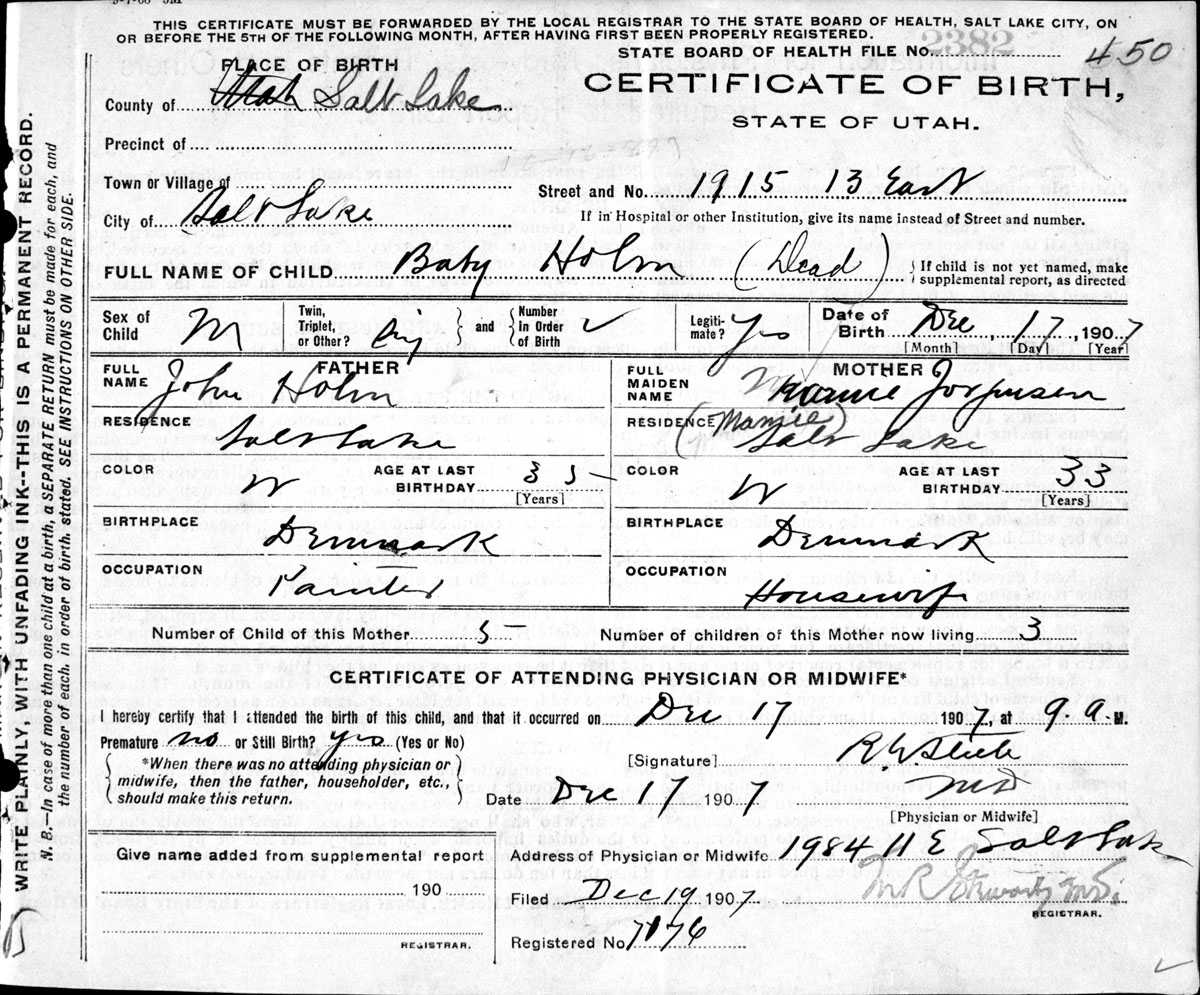 THIS CERTIFICATE MUST BE FORWARDED BY THE LOCAL REGISTRAR TO THE STATE BOARD OF HEALTH, SALT LAKE CITY, ON
OR BEFORE THE 5TH OF THE FOLLOWING MONTH, AFTER HAVING FIRST BEEN PROPERLY REGISTERED.
STATE BOARD OF HEALTH FILE No. 2382 450
PLACE OF BIRTH
CERTIFICATE OF BIRTH,
STATE OF UTAH.
County of Utah Salt Lake
Precinct of
Town or Village of
Street and No. 1915 13 East
City of Salt Lake
If in Hospital or other Institution, give its name instead of Street and number.
FULL NAME OF CHILD Baby Holm (Dead) { If child is not yet named, make
supplemental report, as directed
Sex of Child M Twin, Triplet, or Other? Sig and Number in Order of Birth Legiti-mate? Yes Date of Birth Dec 17, 1907
[Month] [Day] [Year]
FATHER
FULL NAME John Holm
RESIDENCE Salt Lake
COLOR W AGE AT LAST BIRTHDAY 35
[Years]
BIRTHPLACE Denmark
OCCUPATION Painter
MOTHER
FULL MAIDEN NAME Jorgensen
(Mamie)
RESIDENCE Salt Lake
COLOR W AGE AT LAST BIRTHDAY 33
[Years]
BIRTHPLACE Denmark
OCCUPATION Housewife
Number of Child of this Mother 5 Number of children of this Mother now living 3
CERTIFICATE OF ATTENDING PHYSICIAN OR MIDWIFE*
I hereby certify that I attended the birth of this child, and that it occurred on Dec 17 1907, at 9 a.M.
Premature no or Still Birth? yes (Yes or No)
*When there was no attending physician or
midwife, then the father, householder, etc.,
should make this return.
[Signature] R. W.
MD
Date Dec 17 1907
[Physician or Midwife]
Give name added from supplemental report
190
REGISTRAR.
Address of Physician or Midwife 1984 11 E Salt Lak
Filed Dec 19 1907 M R Stewart M.D.
REGISTRAR.
Registered No 7176
WRITE PLAINLY, WITH UNFADING INK--THIS IS A PERMANENT RECORD.
N. B.—In case of more than one child at a birth, a SEPARATE RETURN must be made for each, and
the number of each, in order of birth, stated. SEE INSTRUCTIONS ON OTHER SIDE.